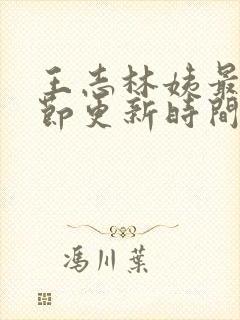 王志林姨最
節更新時間
馮川葉